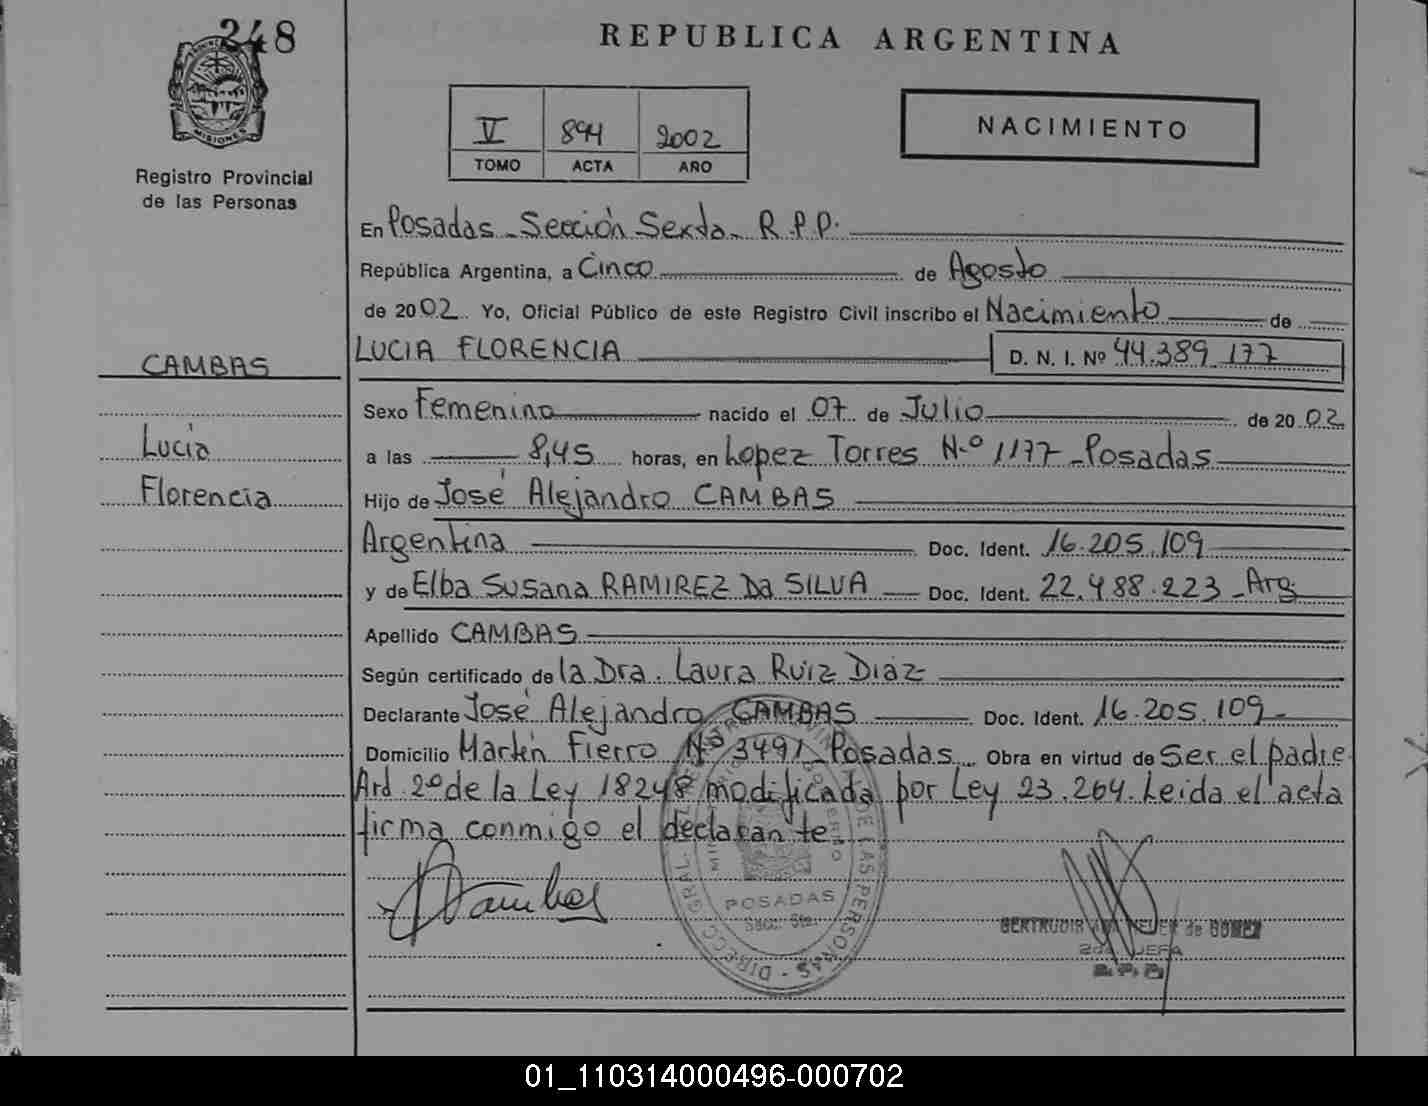 248
REPUBLICA ARGENTINA
MISIONES
Registro Provincial
de las Personas
V 894 2002
TOMO ACTA AÑO
NACIMIENTO
En Posadas - Sección Sexta - R.P.P.
República Argentina, a Cinco de Agosto
de 2002 Yo, Oficial Público de este Registro Civil inscribo el Nacimiento de
LUCIA FLORENCIA D. N. I. Nº 44.389.177
CAMBAS
Lucia
Florencia
Sexo Femenino nacido el 07 de Julio de 2002
a las 8,45 horas, en Lopez Torres N.º 1177 - Posadas
Hijo de José Alejandro CAMBAS
Argentina Doc. Ident. 16.205.109
y de Elba Susana RAMIREZ Da SILVA Doc. Ident. 22.488.223 - Arg.
Apellido CAMBAS
Según certificado de la Dra. Laura Ruiz Diaz
Declarante José Alejandro CAMBAS Doc. Ident. 16.205.109 -
Domicilio Martín Fierro Nº 3491 - Posadas Obra en virtud de Ser el padre
Ard. 2º de la Ley 18248 modificada por Ley 23.264. Leida el acta
firma conmigo el declarante.
POSADAS
GERTRUDIS de GOMEZ
2da. JEFA
R.P.P.
01_110314000496-000702